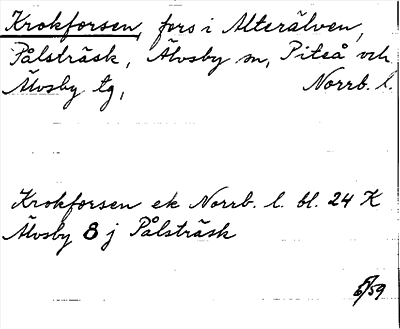 Krokforsen, fors i Alterälven,
Pålsträsk, Älvsby sn, Piteå och
Älvsby tg, Norrb. l.
Krokforsen ek Norrb. l. bl. 24 K
Älvsby 8 j Pålsträsk
/59